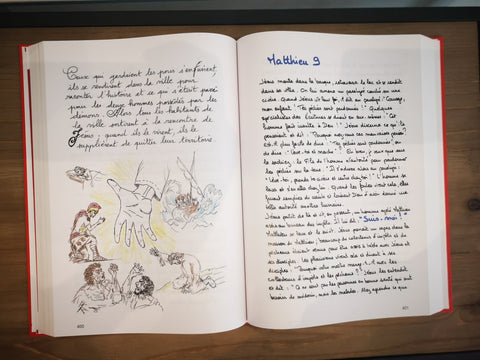 Ceux qui gardaient les porcs s'enfuirent,
ils se rendirent dans la ville pour
raconter l'histoire et ce qui s'était passé
pour les deux hommes possédés par des
démons. Alors tous les habitants de
la ville sortirent à la rencontre de
Jésus ; quand ils le virent, ils le
supplièrent de quitter leur territoire.
400
Matthieu 9
Jésus monta dans la barque, retraversa le lac et se rendit
dans sa ville. On lui amena un paralysé couché sur une
civière. Quand Jésus vit leur foi, il dit au paralysé : "Courage,
mon enfant ! Tes péchés sont pardonnés !" Quelques
spécialistes des Écritures se disent en eux-mêmes : "Cet
homme fait insulte à Dieu !" Jésus discerna ce qu'ils
pensaient et dit : "Pourquoi avez-vous ces mauvaises pensées ?
Est-il plus facile de dire : "Tes péchés sont pardonnés", ou
de dire : "Lève-toi et marche" ? Eh bien, je veux que vous
le sachiez : le Fils de l'homme a l'autorité pour pardonner
les péchés sur la terre." Il s'adressa alors au paralysé :
"Lève-toi, prends ta civière et rentre chez toi !" L'homme se
leva et s'en alla chez lui. Quand les foules virent cela, elles
furent remplies de crainte et louèrent Dieu d'avoir donné une
telle autorité aux êtres humains.
Jésus partit de là et vit, en passant, un homme appelé Matthieu
assis au bureau des impôts. Il lui dit : "Suis-moi !"
Matthieu se leva et le suivit. Jésus prenait un repas dans la
maison de Matthieu ; beaucoup de collecteurs d'impôts et de
pécheurs étaient venus pour être avec à table avec Jésus et
ses disciples. Les pharisiens virent cela et dirent à ses
disciples : "Pourquoi votre maître mange-t-il avec les
collecteurs d'impôts et les pécheurs ?" Jésus les entendit
et dit : "Ce ne sont pas les personnes en bonne santé qui ont
besoin de médecin, mais les malades. Allez apprendre ce que
401